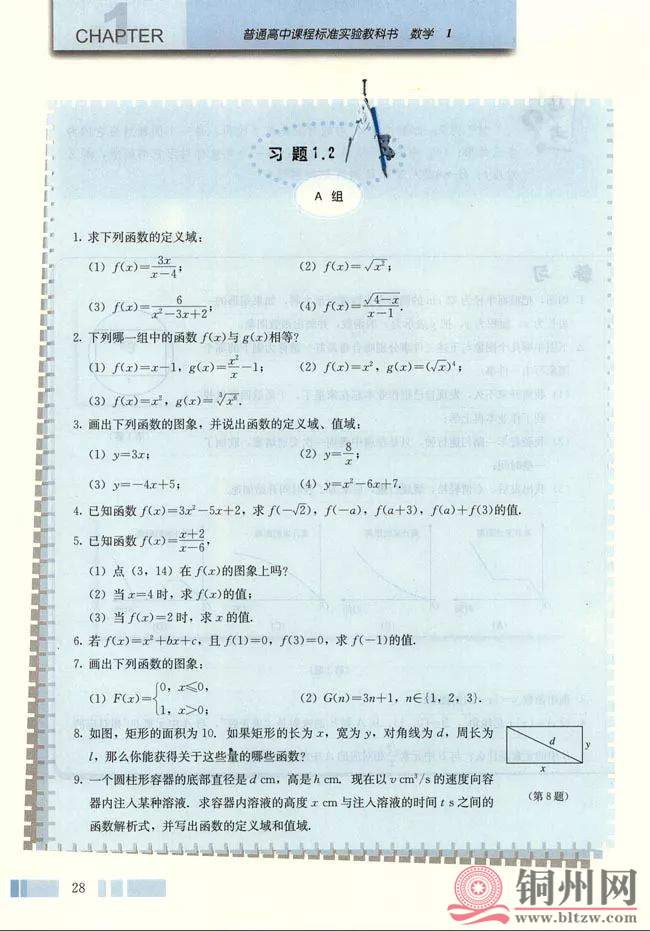 1
CHAPTER
普通高中课程标准实验教科书 数学 1
习题1.2
A 组
1. 求下列函数的定义域:
(1) f(x)=3x/(x-4); (2) f(x)=√x²;
(3) f(x)=6/(x²-3x+2); (4) f(x)=√(4-x)/(x-1).
2. 下列哪一组中的函数 f(x)与 g(x)相等?
(1) f(x)=x-1, g(x)=x²/x-1; (2) f(x)=x², g(x)=(√x)⁴;
(3) f(x)=x², g(x)=∛x⁶.
3. 画出下列函数的图象,并说出函数的定义域、值域:
(1) y=3x; (2) y=8/x;
(3) y=-4x+5; (4) y=x²-6x+7.
4. 已知函数 f(x)=3x²-5x+2, 求 f(-√2), f(-a), f(a+3), f(a)+f(3)的值.
5. 已知函数 f(x)=(x+2)/(x-6),
(1) 点 (3, 14) 在 f(x)的图象上吗?
(2) 当 x=4 时, 求 f(x)的值;
(3) 当 f(x)=2 时, 求 x 的值.
6. 若 f(x)=x²+bx+c, 且 f(1)=0, f(3)=0, 求 f(-1)的值.
7. 画出下列函数的图象:
(1) F(x)={0, x≤0, 1, x>0; (2) G(n)=3n+1, n∈{1, 2, 3}.
8. 如图, 矩形的面积为 10. 如果矩形的长为 x, 宽为 y, 对角线为 d, 周长为
l, 那么你能获得关于这些量的哪些函数?
d
y
x
(第 8 题)
9. 一个圆柱形容器的底部直径是 d cm, 高是 h cm. 现在以 v cm³/s 的速度向容
器内注入某种溶液. 求容器内溶液的高度 x cm 与注入溶液的时间 t s 之间的
函数解析式, 并写出函数的定义域和值域.
28
铜州网
www.bltzw.com